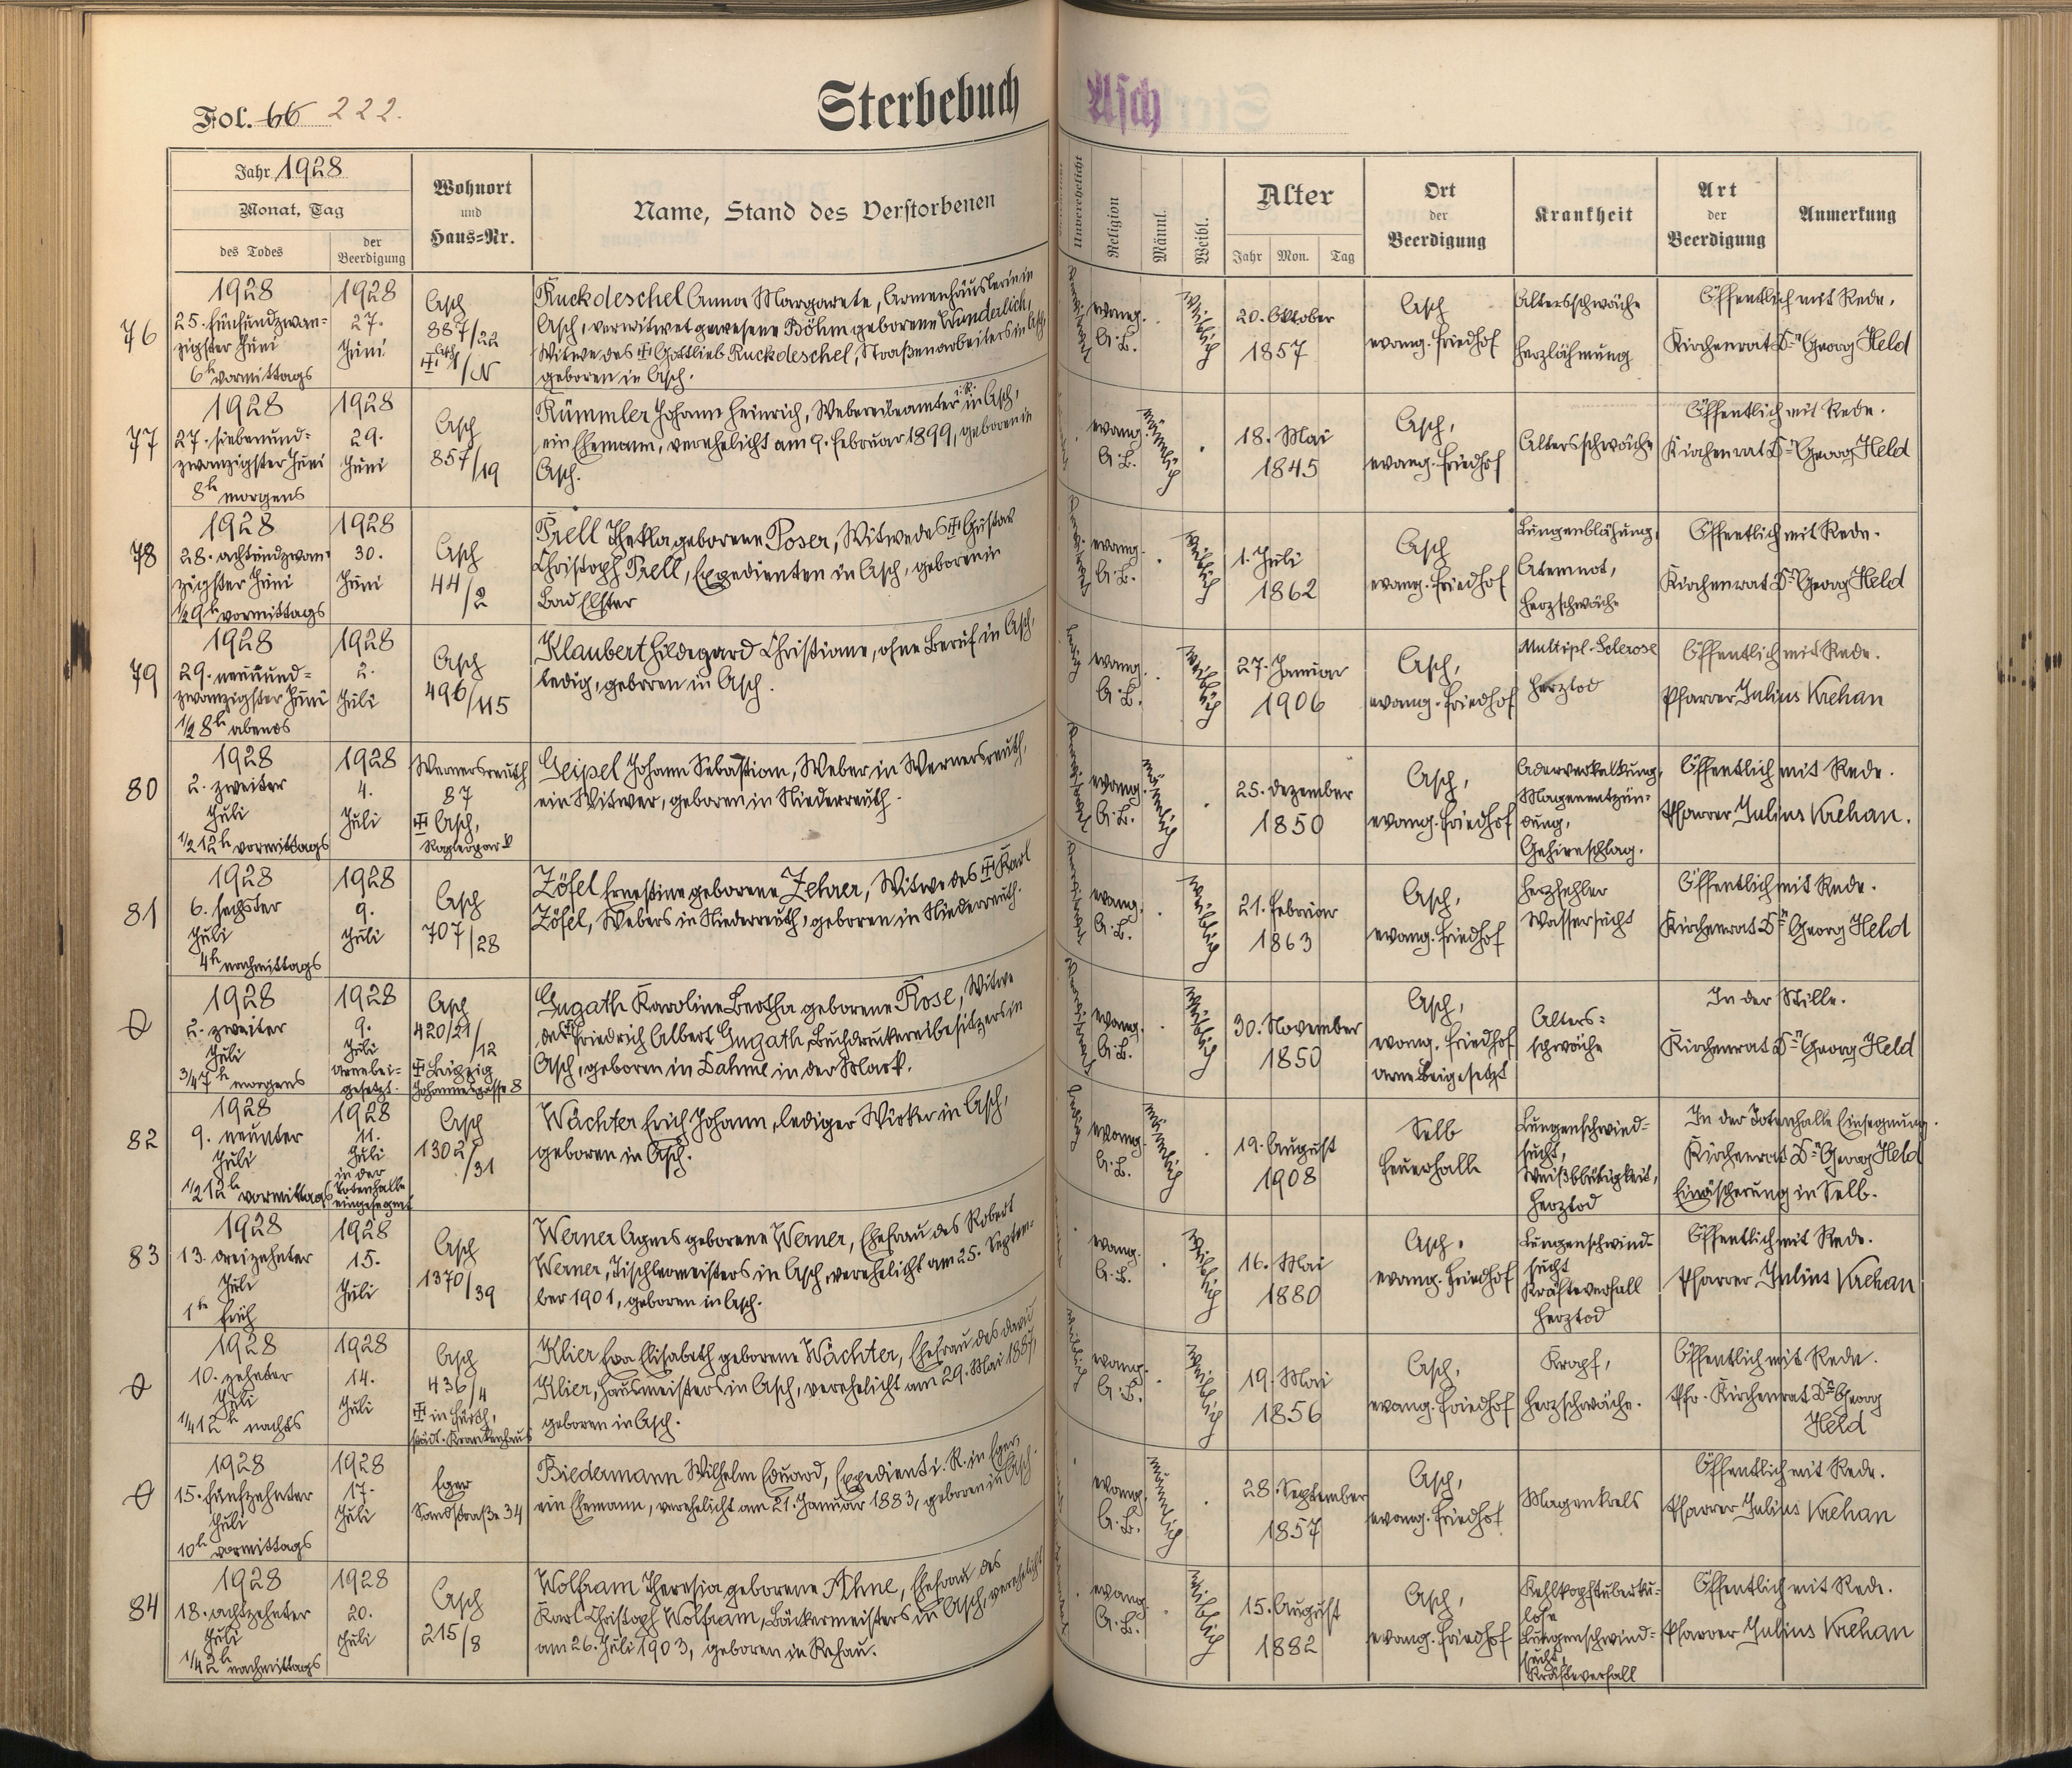 Fol. 66 222.
Sterbebuch Asch
Jahr 1928
Monat, Tag
des Todes
der
Beerdigung
Wohnort
und
Haus=Nr.
Name, Stand des Verstorbenen
Unverehelicht
Religion
Männl.
Weibl.
Alter
Jahr Mon. Tag
Ort
der
Beerdigung
Krankheit
Art
der
Beerdigung
Anmerkung
76
1928
25. fünfundzwan=
zigster Juni
6h vormittags
1928
27.
Juni
Asch
887/22
Ruckdeschel Anna Margarete, Armenhäuslerin in
Asch, verwitwet gewesene Böhm geborene Wunderlich,
Witwe des Gottlieb Ruckdeschel, Straßenarbeiters in Asch,
geboren in Asch.
evang.
A. B.
weiblich
20. Oktober
1857
Asch
evang. Friedhof
Altersschwäche
Herzlähmung
Öffentlich mit Rede.
Kirchenrat Dr. Georg Held
77
1928
27. siebenund=
zwanzigster Juni
8h morgens
1928
29.
Juni
Asch
857/19
Rümmler Johann Heinrich, Webereibeamter i. R. in Asch,
ein Ehemann, verehelicht am 9. Februar 1899, geboren in
Asch.
evang.
A. B.
männlich
18. Mai
1845
Asch,
evang. Friedhof
Altersschwäche
Öffentlich mit Rede.
Kirchenrat Dr. Georg Held
78
1928
28. achtundzwan=
zigster Juni
1/2 9h vormittags
1928
30.
Juni
Asch
44/2
Prell Thekla geborene Poser, Witwe des Gustav
Christoph Prell, Expedienten in Asch, geboren in
Bad Elster
evang.
A. B.
weiblich
1. Juli
1862
Asch
evang. Friedhof
Lungenblähung,
Atemnot,
Herzschwäche
Öffentlich mit Rede.
Kirchenrat Dr. Georg Held
79
1928
29. neunund=
zwanzigster Juni
1/2 8h abends
1928
2.
Juli
Asch
496/115
Klaubert Hildegard Christiane, ohne Beruf in Asch,
ledig, geboren in Asch.
ledig
evang.
A. B.
weiblich
27. Januar
1906
Asch,
evang. Friedhof
Multipl. Sclerose
Herztod
Öffentlich mit Rede.
Pfarrer Julius Krehan
80
1928
2. zweiter
Juli
1/2 12h vormittags
1928
4.
Juli
Wernersreuth
87
Asch,
Geipel Johann Sebastian, Weber in Wernersreuth,
ein Witwer, geboren in Niederreuth.
evang.
A. B.
männlich
25. Dezember
1850
Asch,
evang. Friedhof
Aderverkalkung,
Magenentzün=
dung,
Gehirnschlag.
Öffentlich mit Rede.
Pfarrer Julius Krehan.
81
1928
6. sechster
Juli
4h nachmittags
1928
9.
Juli
Asch
707/28
Zöfel Ernestine geborene Zehrer, Witwe des Karl
Zöfel, Webers in Niederreuth, geboren in Niederreuth.
evang.
A. B.
weiblich
21. Februar
1863
Asch,
evang. Friedhof
Herzfehler
Wassersucht
Öffentlich mit Rede.
Kirchenrat Dr. Georg Held
1928
2. zweiter
Juli
3/4 7h morgens
1928
9.
Juli
Urne bei=
gesetzt.
Asch
420/21/12
Leipzig
Johannesgasse 8
Gugath Karoline Bertha geborene Rose, Witwe
des Friedrich Albert Gugath, Buchdruckereibesitzers in
Asch, geboren in Dahme in der Mark.
evang.
A. B.
weiblich
30. November
1850
Asch,
evang. Friedhof
Urne beigesetzt
Alters=
schwäche
In der Stille.
Kirchenrat Dr. Georg Held
82
1928
9. neunter
Juli
1/2 12h vormittags
1928
11.
Juli
in der
Totenhalle
eingesegnet
Asch
1302/31
Wächter Erich Johann, lediger Wirker in Asch,
geboren in Asch.
ledig
evang.
A. B.
männlich
19. August
1908
Selb
Feuerhalle
Lungenschwind=
sucht,
Weißblütigkeit,
Herztod
In der Totenhalle Einsegnung.
Kirchenrat Dr. Georg Held
Einäscherung in Selb.
83
1928
13. dreizehnter
Juli
1h früh
1928
15.
Juli
Asch
1370/39
Werner Agnes geborene Werner, Ehefrau des Robert
Werner, Tischlermeisters in Asch, verehelicht am 25. Septem=
ber 1901, geboren in Asch.
evang.
A. B.
weiblich
16. Mai
1880
Asch.
evang. Friedhof
Lungenschwind
sucht
Kräfteverfall
Herztod
Öffentlich mit Rede.
Pfarrer Julius Krehan
1928
10. zehnter
Juli
1/4 12h nachts
1928
14.
Juli
Asch
436/4
in Fürth,
städt. Krankenhaus
Klier Eva Elisabeth geborene Wächter, Ehefrau des David
Klier, Hausmeisters in Asch, verehelicht am 29. Mai 1887,
geboren in Asch.
evang.
A. B.
weiblich
19. Mai
1856
Asch,
evang. Friedhof
Kropf,
Herzschwäche.
Öffentlich mit Rede.
Pfr. Kirchenrat Dr. Georg
Held
1928
15. fünfzehnter
Juli
10h vormittags
1928
17.
Juli
Eger
Sandstraße 34
Biedermann Wilhelm Eduard, Expedient i. R. in Eger,
ein Ehemann, verehelicht am 21. Januar 1883, geboren in Asch.
evang.
A. B.
männlich
28. September
1857
Asch,
evang. Friedhof
Magenkrebs
Öffentlich mit Rede.
Pfarrer Julius Krehan
84
1928
18. achtzehnter
Juli
1/4 2h nachmittags
1928
20.
Juli
Asch
215/8
Wolfram Theresia geborene Ihne, Ehefrau des
Karl Christoph Wolfram, Bäckermeisters in Asch, verehelicht
am 26. Juli 1903, geboren in Rehau.
evang.
A. B.
weiblich
15. August
1882
Asch,
evang. Friedhof
Kehlkopftuberku=
lose
Lungenschwind=
sucht,
Kräfteverfall
Öffentlich mit Rede.
Pfarrer Julius Krehan